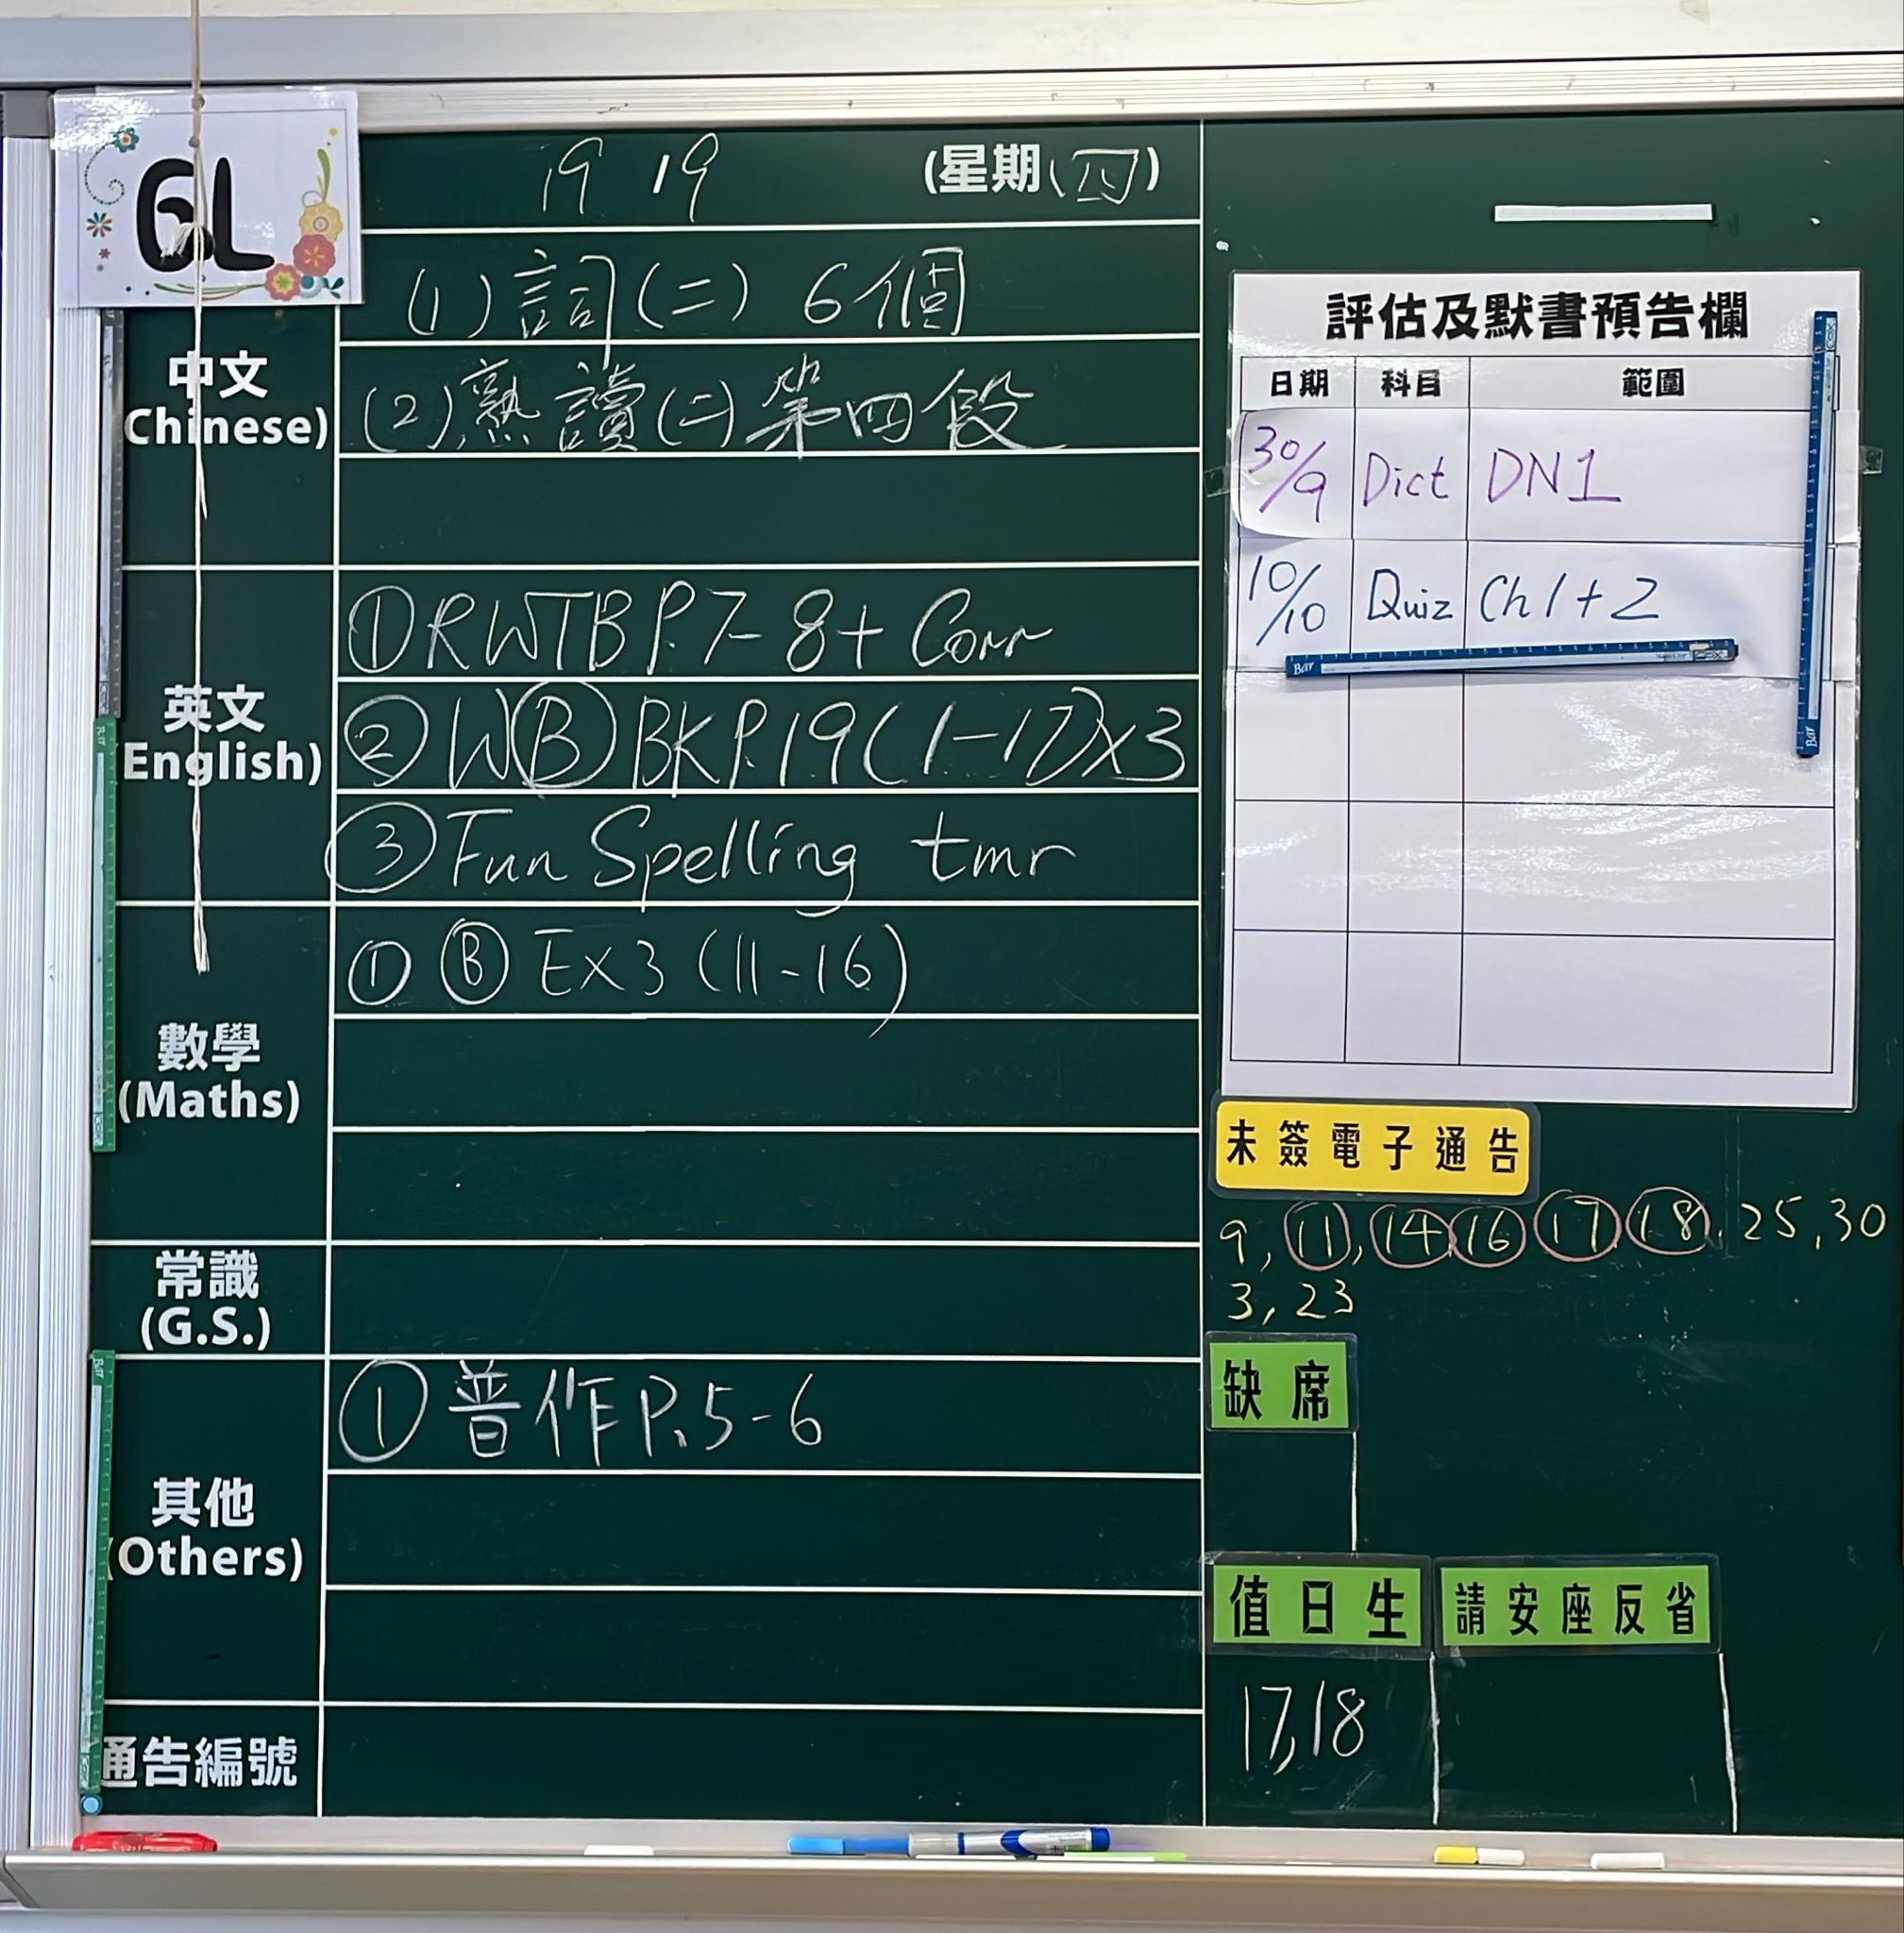 6L
19 / 9 (星期(四))
中文
(Chinese)
(1) 詞(二) 6個
(2) 熟讀(二)第四段
英文
(English)
① RWTB P.7-8 + Corr
② W(B) BK P.19 (1-17)x3
③ Fun Spelling tmr
數學
(Maths)
① Ⓑ Ex 3 (11-16)
常識
(G.S.)
其他
(Others)
① 普作 P.5-6
通告編號
評估及默書預告欄
日期 科目 範圍
30/9 Dict DN1
10/10 Quiz Ch 1 + 2
Bar
Bar
未簽電子通告
9, 11, 14, 16 17 18, 25, 30
3, 23
缺席
值日生 請安座反省
17,18